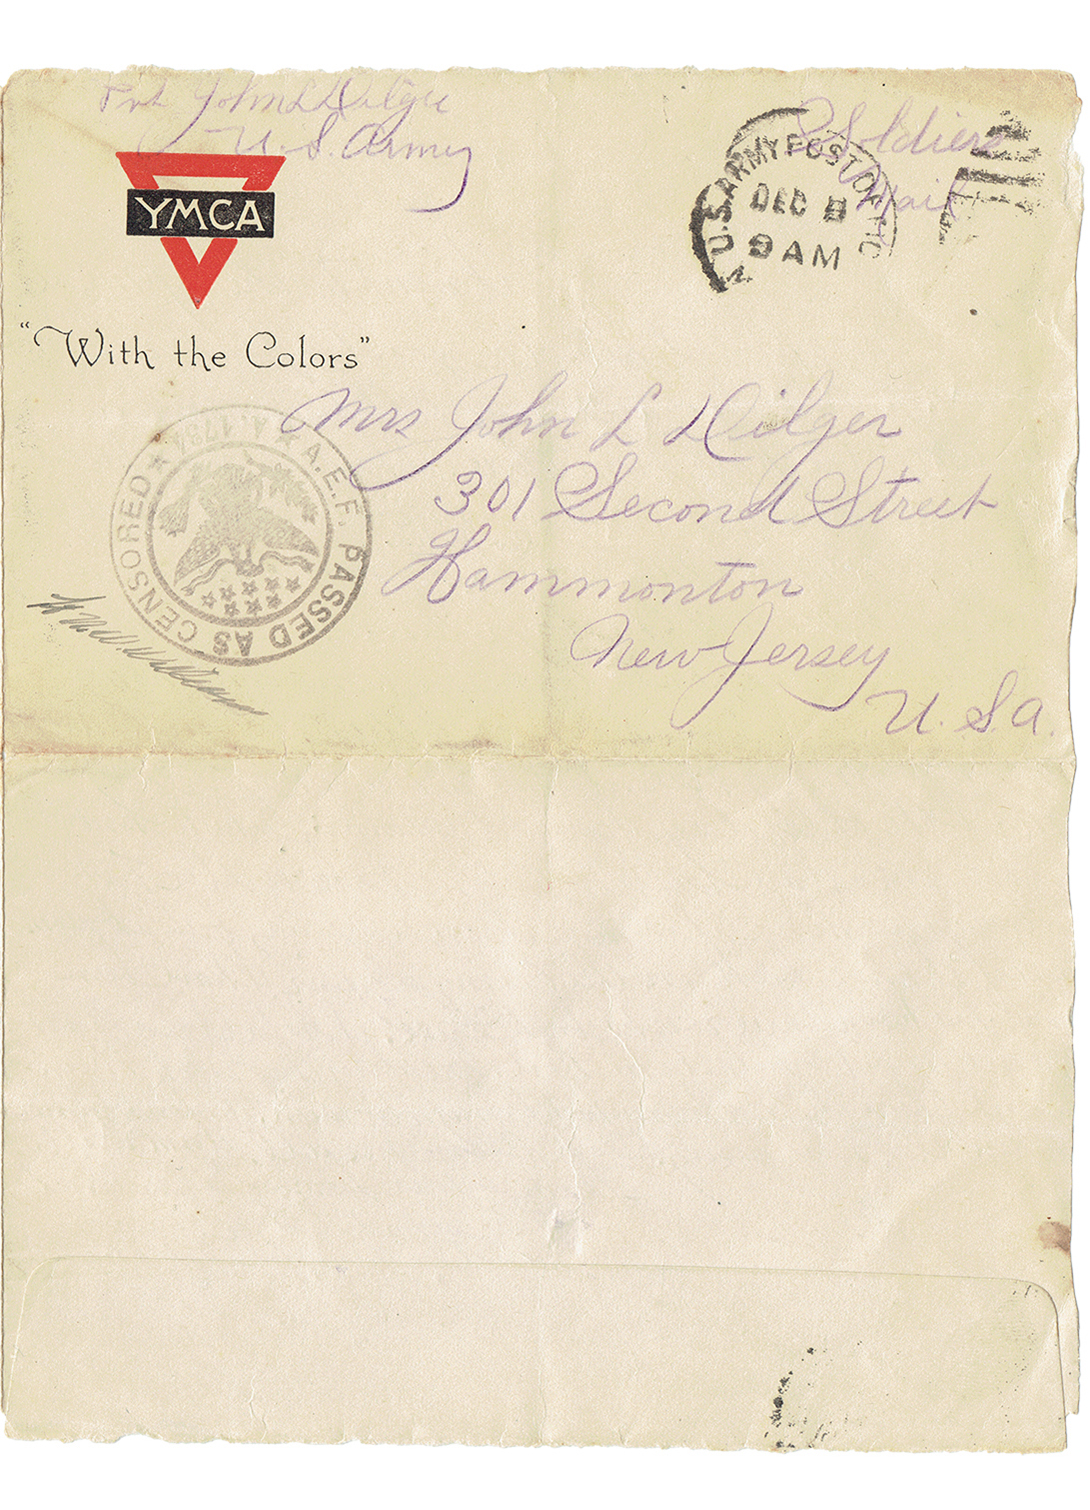 Pvt John L Dilger
U. S. Army
Soldiers
Mail
U.S. ARMY POST OFFICE
DEC 8
9 AM
YMCA
"With the Colors"
Mrs John L Dilger
301 Second Street
Hammonton
New Jersey
U. S. A.
A.E.F. PASSED AS CENSORED